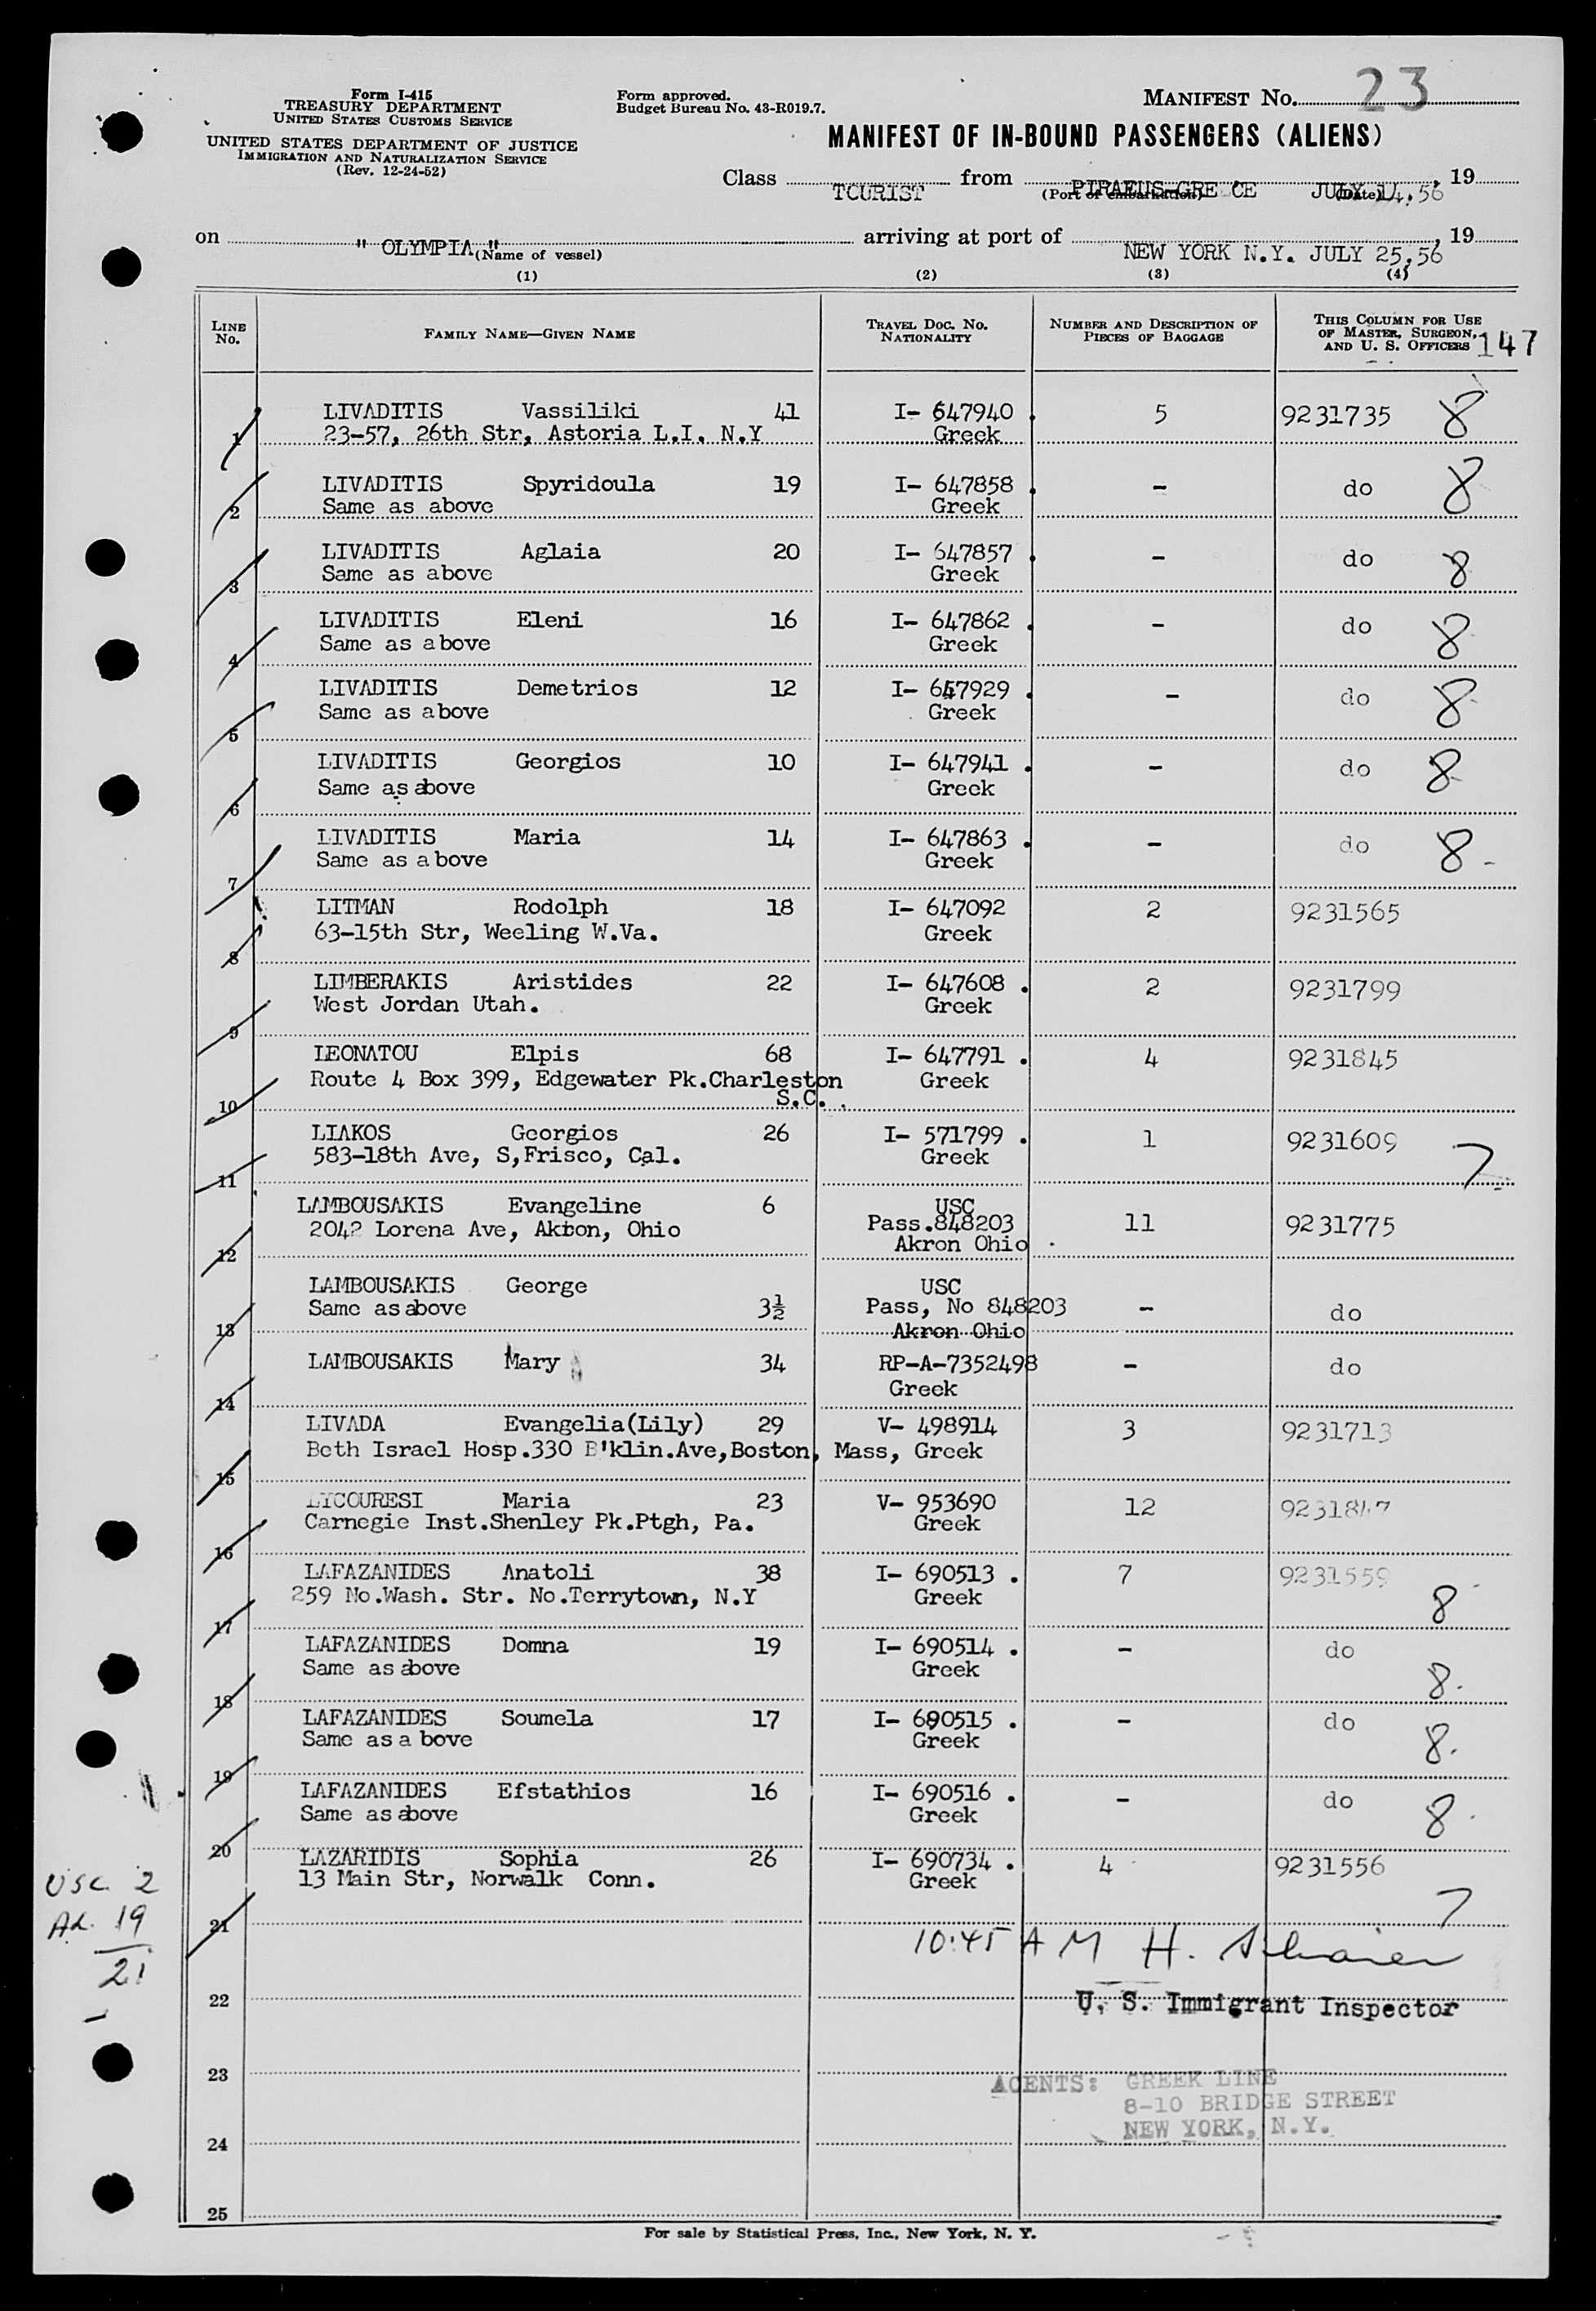 Form I-415
TREASURY DEPARTMENT
UNITED STATES CUSTOMS SERVICE
UNITED STATES DEPARTMENT OF JUSTICE
IMMIGRATION AND NATURALIZATION SERVICE
(Rev. 12-24-52)
Form approved.
Budget Bureau No. 43-R019.7.
MANIFEST NO. 23
MANIFEST OF IN-BOUND PASSENGERS (ALIENS)
Class TOURIST from PIRAEUS-GREECE JULY 14,56 , 19
(Port of embarkation) (Date)
on " OLYMPIA " arriving at port of NEW YORK N.Y. JULY 25,56 , 19
(Name of vessel)
(1) (2) (3) (4)
LINE NO. FAMILY NAME—GIVEN NAME TRAVEL DOC. NO. NATIONALITY NUMBER AND DESCRIPTION OF PIECES OF BAGGAGE THIS COLUMN FOR USE OF MASTER, SURGEON, AND U. S. OFFICERS 147
LIVADITIS Vassiliki 41 I- 647940 . 5 9231735 8
1 23-57, 26th Str, Astoria L.I. N.Y Greek
LIVADITIS Spyridoula 19 I- 647858 . - do 8
2 Same as above Greek
LIVADITIS Aglaia 20 I- 647857 . - do 8
3 Same as above Greek
LIVADITIS Eleni 16 I- 647862 . - do 8
4 Same as above Greek
LIVADITIS Demetrios 12 I- 647929 . - do 8
5 Same as above Greek
LIVADITIS Georgios 10 I- 647941 . - do 8
6 Same as above Greek
LIVADITIS Maria 14 I- 647863 . - do 8
7 Same as above Greek
LITMAN Rodolph 18 I- 647092 2 9231565
8 63-15th Str, Weeling W.Va. Greek
LIMBERAKIS Aristides 22 I- 647608 . 2 9231799
9 West Jordan Utah. Greek
LEONATOU Elpis 68 I- 647791 . 4 9231845
Route 4 Box 399, Edgewater Pk.Charleston Greek
10 S.C.
LIAKOS Georgios 26 I- 571799 . 1 9231609 7
11 583-18th Ave, S,Frisco, Cal. Greek
LAMBOUSAKIS Evangeline 6 USC
2042 Lorena Ave, Akron, Ohio Pass.848203 11 9231775
12 Akron Ohio
LAMBOUSAKIS George USC
Same as above 3½ Pass, No 848203 - do
13 Akron Ohio
LAMBOUSAKIS Mary 34 RP-A-7352498 - do
14 Greek
LIVADA Evangelia(Lily) 29 V- 498914 3 9231713
15 Beth Israel Hosp.330 B'klin.Ave,Boston, Mass, Greek
LICOURESI Maria 23 V- 953690 12 9231847
16 Carnegie Inst.Shenley Pk.Ptgh, Pa. Greek
LAFAZANIDES Anatoli 38 I- 690513 . 7 9231559 8
17 259 No.Wash. Str. No.Terrytown, N.Y Greek
LAFAZANIDES Domna 19 I- 690514 . - do 8.
18 Same as above Greek
LAFAZANIDES Soumela 17 I- 690515 . - do 8.
19 Same as above Greek
LAFAZANIDES Efstathios 16 I- 690516 . - do 8
20 Same as above Greek
LAZARIDIS Sophia 26 I- 690734 . 4 9231556 7
21 13 Main Str, Norwalk Conn. Greek
USC. 2
AL. 19
21
10:45 AM H.
22 U. S. Immigrant Inspector
23
AGENTS: GREEK LINE
8-10 BRIDGE STREET
NEW YORK, N.Y.
24
25
For sale by Statistical Press, Inc., New York, N. Y.